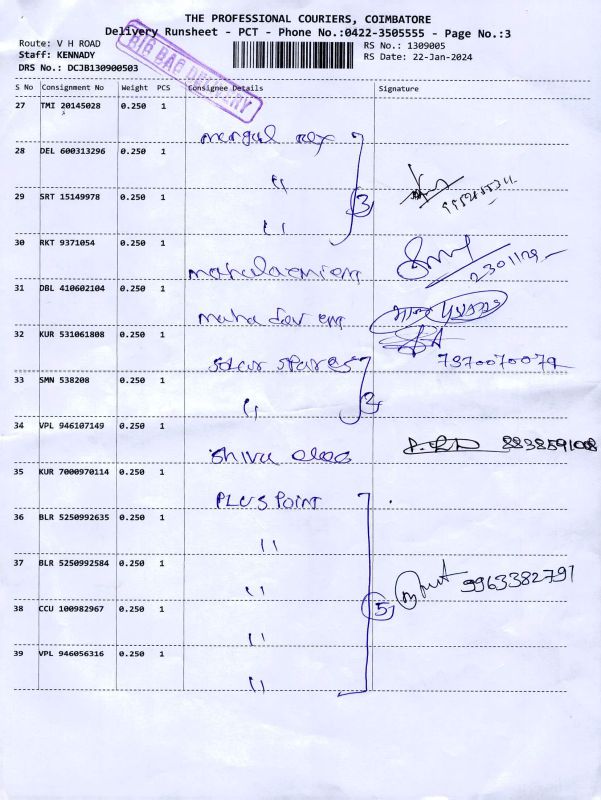 THE PROFESSIONAL COURIERS, COIMBATORE
Delivery Runsheet - PCT - Phone No.:0422-3505555 - Page No.:3
Route: V H ROAD
RS No.: 1309005
Staff: KENNADY
RS Date: 22-Jan-2024
DRS No.: DCJB130900503
BIG BAG DELIVERY
S No Consignment No Weight PCS Consignee Details Signature
27 TMI 20145028 0.250 1
28 DEL 600313296 0.250 1
〃
29 SRT 15149978 0.250 1
3
〃
30 RKT 9371054 0.250 1
31 DBL 410602104 0.250 1
maha dev em
32 KUR 531061808 0.250 1
star spares 7370070079
33 SMN 538208 0.250 1
〃 2
34 VPL 946107149 0.250 1
shiva elec 8838591008
35 KUR 7000970114 0.250 1
PLUS POINT
36 BLR 5250992635 0.250 1
〃
37 BLR 5250992584 0.250 1
〃 9963382791
38 CCU 100982967 0.250 1
5
〃
39 VPL 946056316 0.250 1
〃